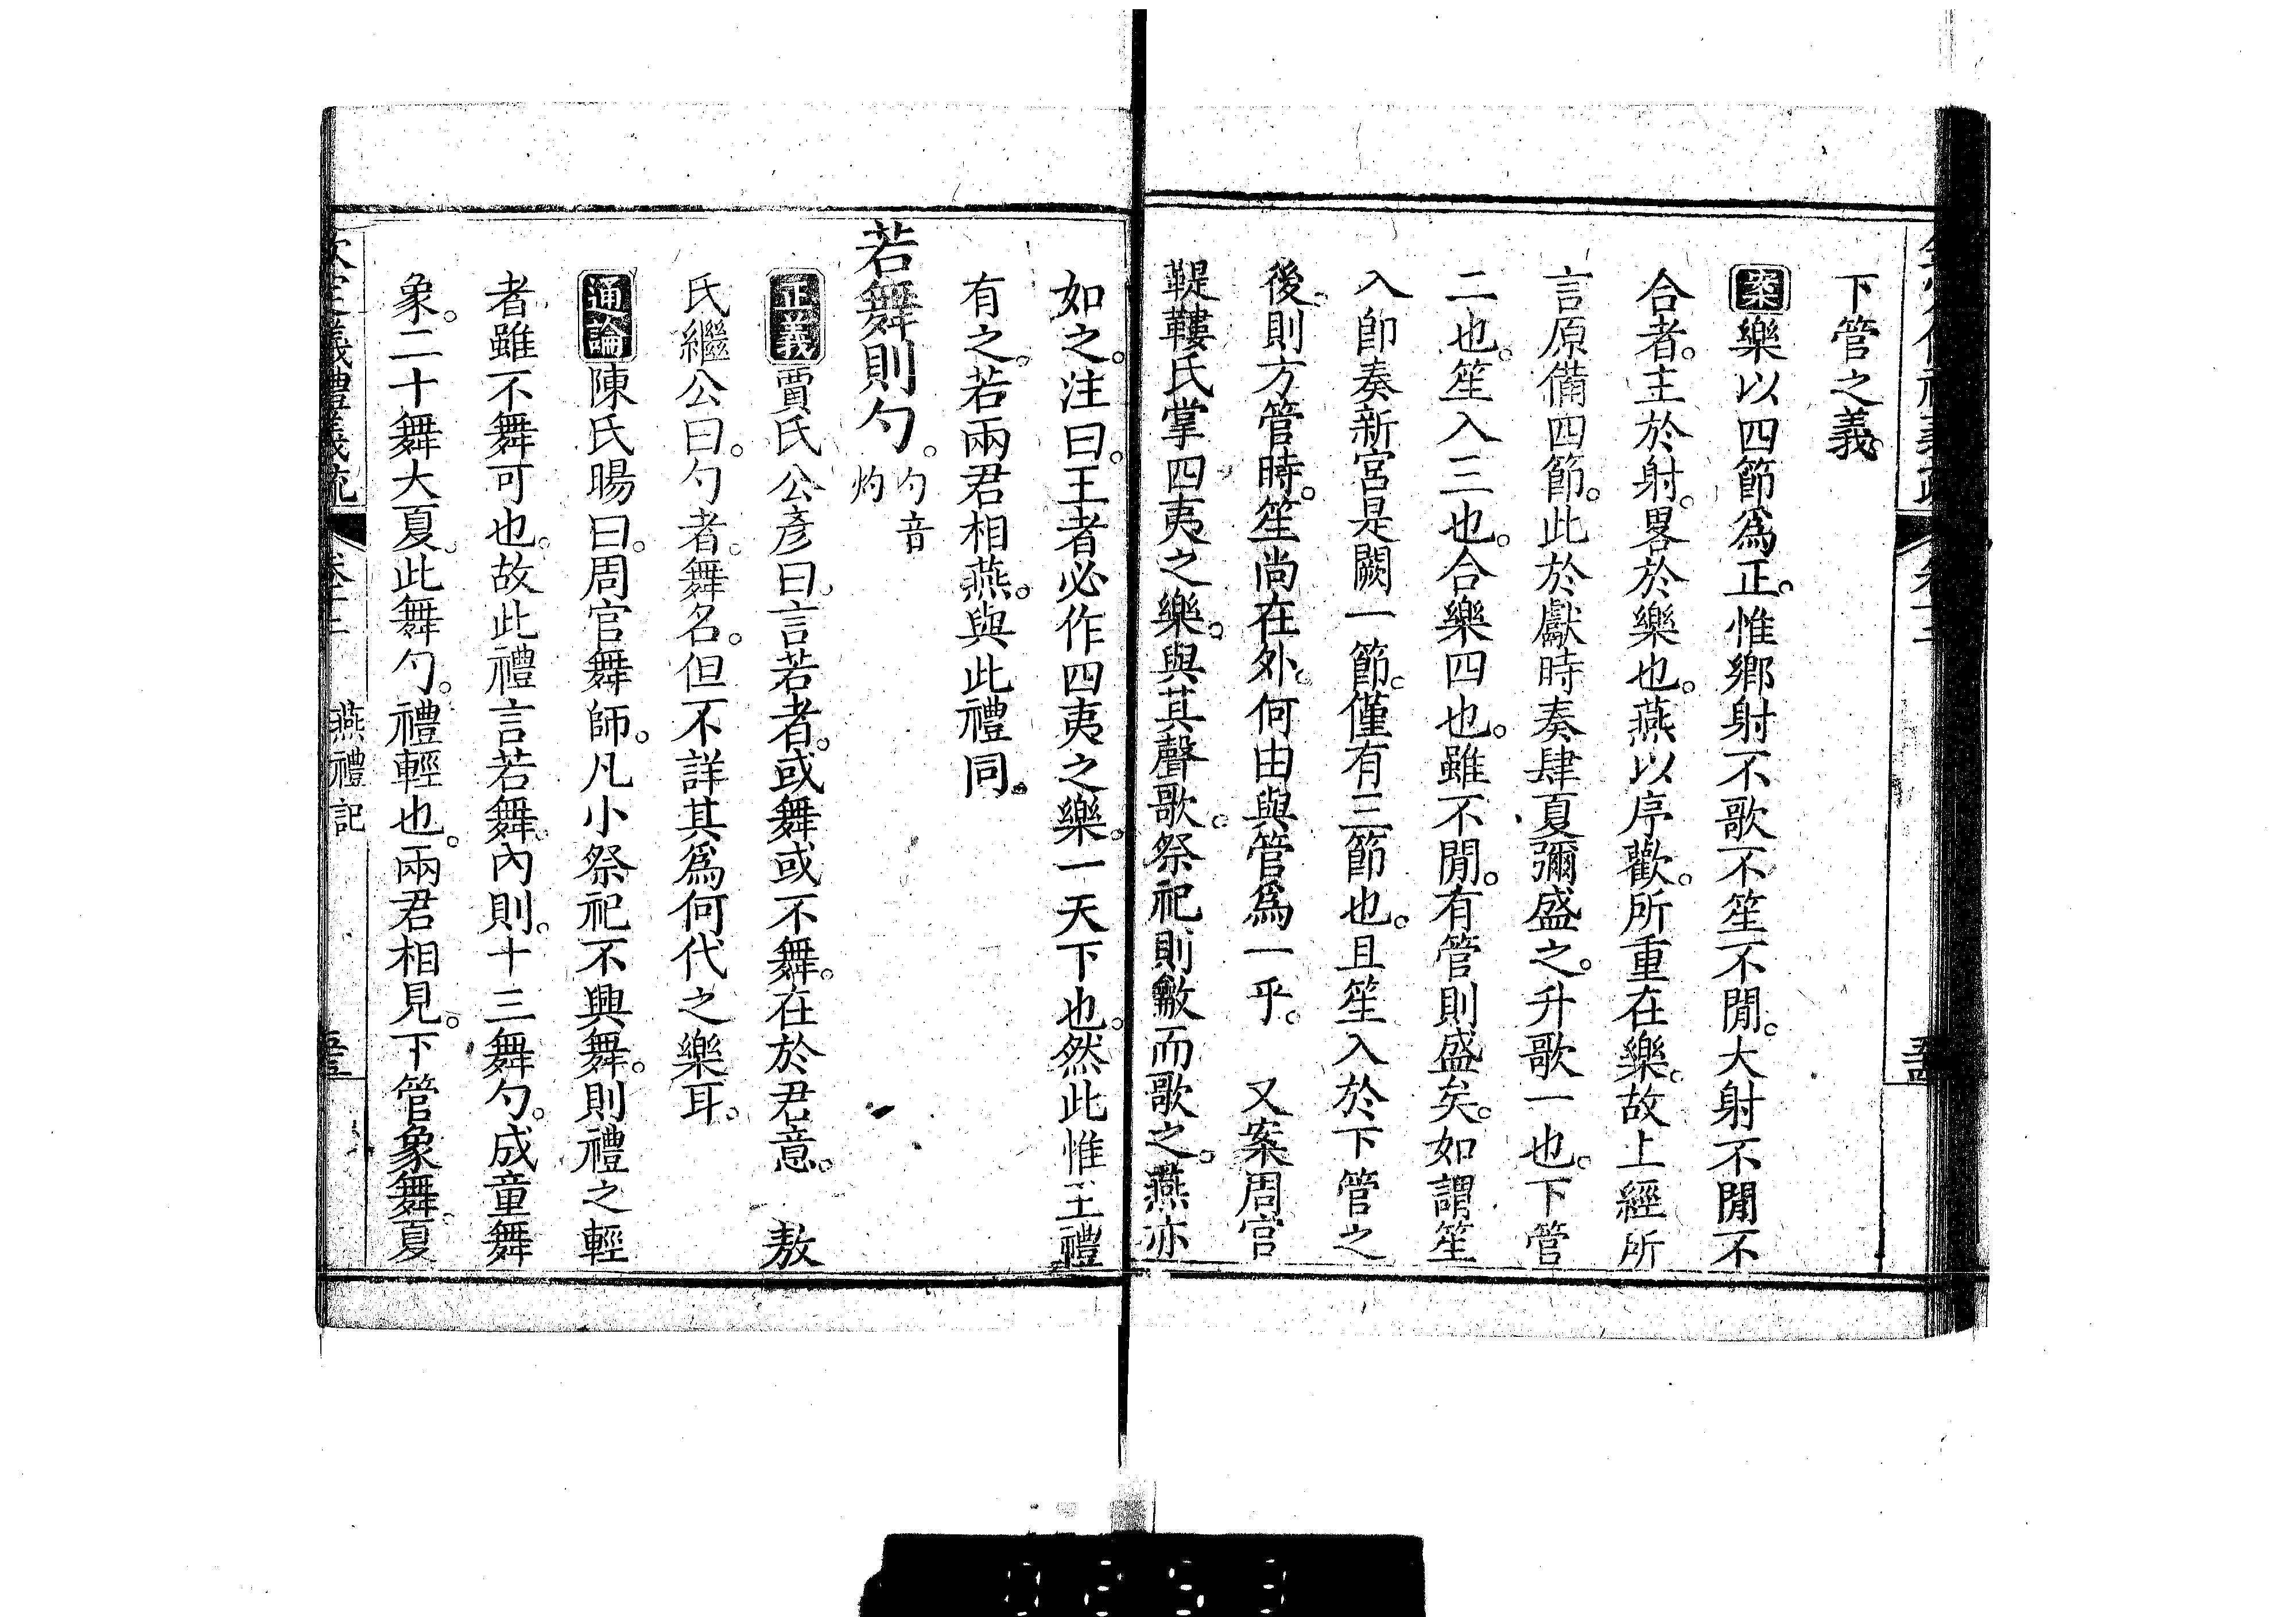 下管之義。
案樂以四節爲正。惟鄉射不歌不笙不閒。大射不閒不
合者。主於射。畧於樂也。燕以序歡。所重在樂。故上經所
言原備四節。此於獻時奏肆夏彌盛之。升歌一也。下管
二也。笙入三也。合樂四也。雖不閒。有管則盛矣。如謂笙
入卽奏新宮是闕一節。僅有三節也。且笙入於下管之
後。則方管時。笙尚在外。何由與管爲一乎。 又案周官
鞮鞻氏掌四夷之樂。與其聲歌。祭祀則龡而歌之。燕亦
如之。注曰。王者必作四夷之樂。一天下也。然此惟王禮
有之。若兩君相燕。與此禮同。
若舞則勺。勺音灼
正義賈氏公彥曰。言若者。或舞或不舞。在於君意。 敖
氏繼公曰。勺者。舞名。但不詳其爲何代之樂耳。
通論陳氏暘曰。周官舞師。凡小祭祀不興舞。則禮之輕
者雖不舞可也。故此禮言若舞。內則。十三舞勺。成童舞
象。二十舞大夏。此舞勺。禮輕也。兩君相見。下管象舞。夏
欽定儀禮義疏 卷十二 燕禮記 至